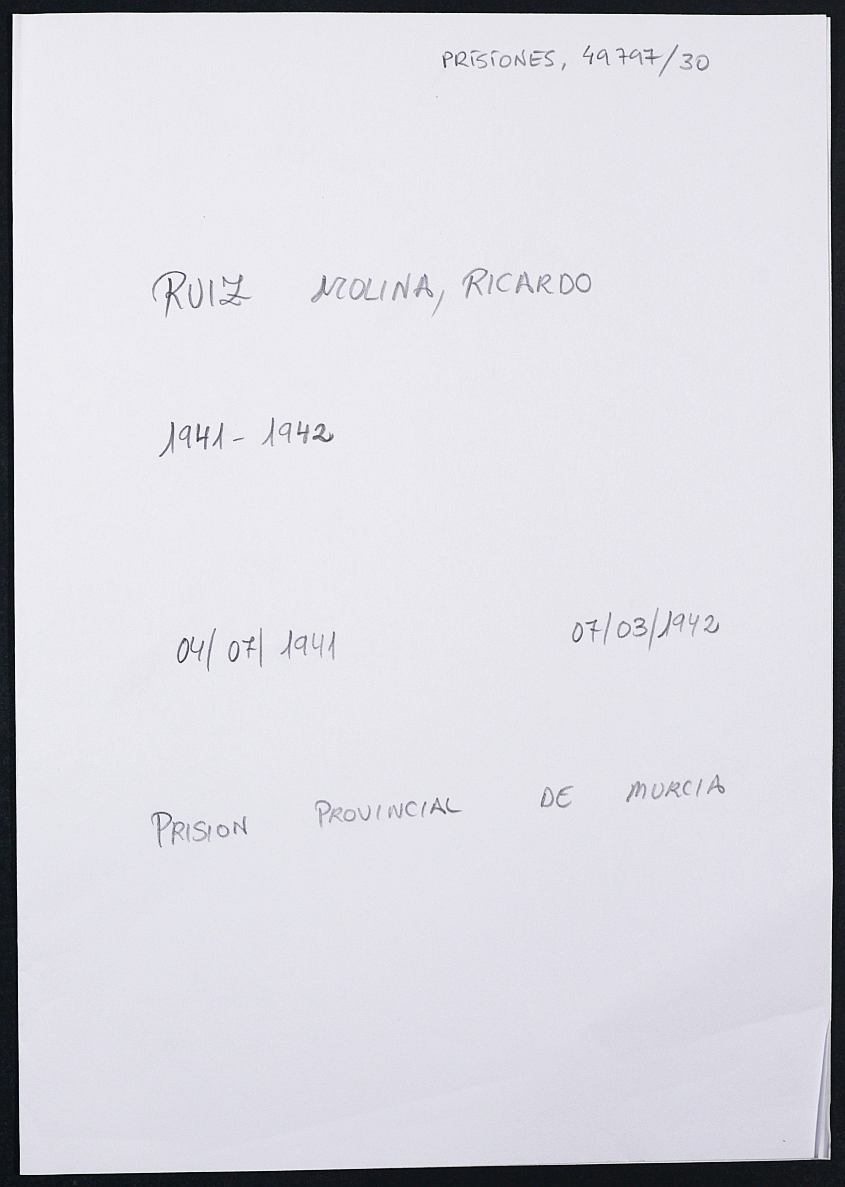 PRISIONES, 49797/30
RUIZ MOLINA, RICARDO
1941 - 1942
04/07/1941 07/03/1942
PRISION PROVINCIAL DE MURCIA